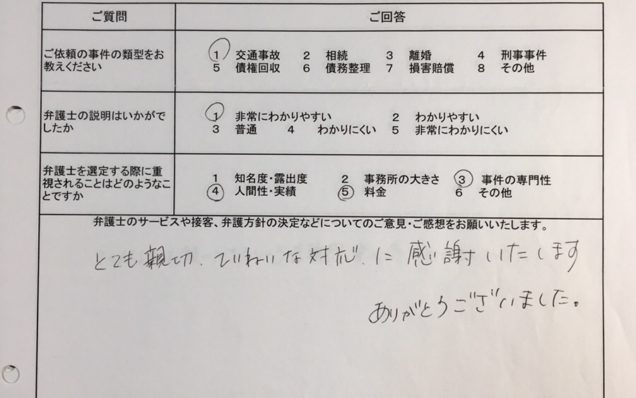 ご質問 ご回答
ご依頼の事件の類型をお
教えください
1 交通事故 2 相続 3 離婚 4 刑事事件
5 債権回収 6 債務整理 7 損害賠償 8 その他
弁護士の説明はいかがで
したか
1 非常にわかりやすい 2 わかりやすい
3 普通 4 わかりにくい 5 非常にわかりにくい
弁護士を選定する際に重
視されることはどのようなこ
とですか
1 知名度・露出度 2 事務所の大きさ 3 事件の専門性
4 人間性・実績 5 料金 6 その他
弁護士のサービスや接客、弁護方針の決定などについてのご意見・ご感想をお願いいたします。
とても親切、ていねいな対応、に感謝いたします
ありがとうございました。